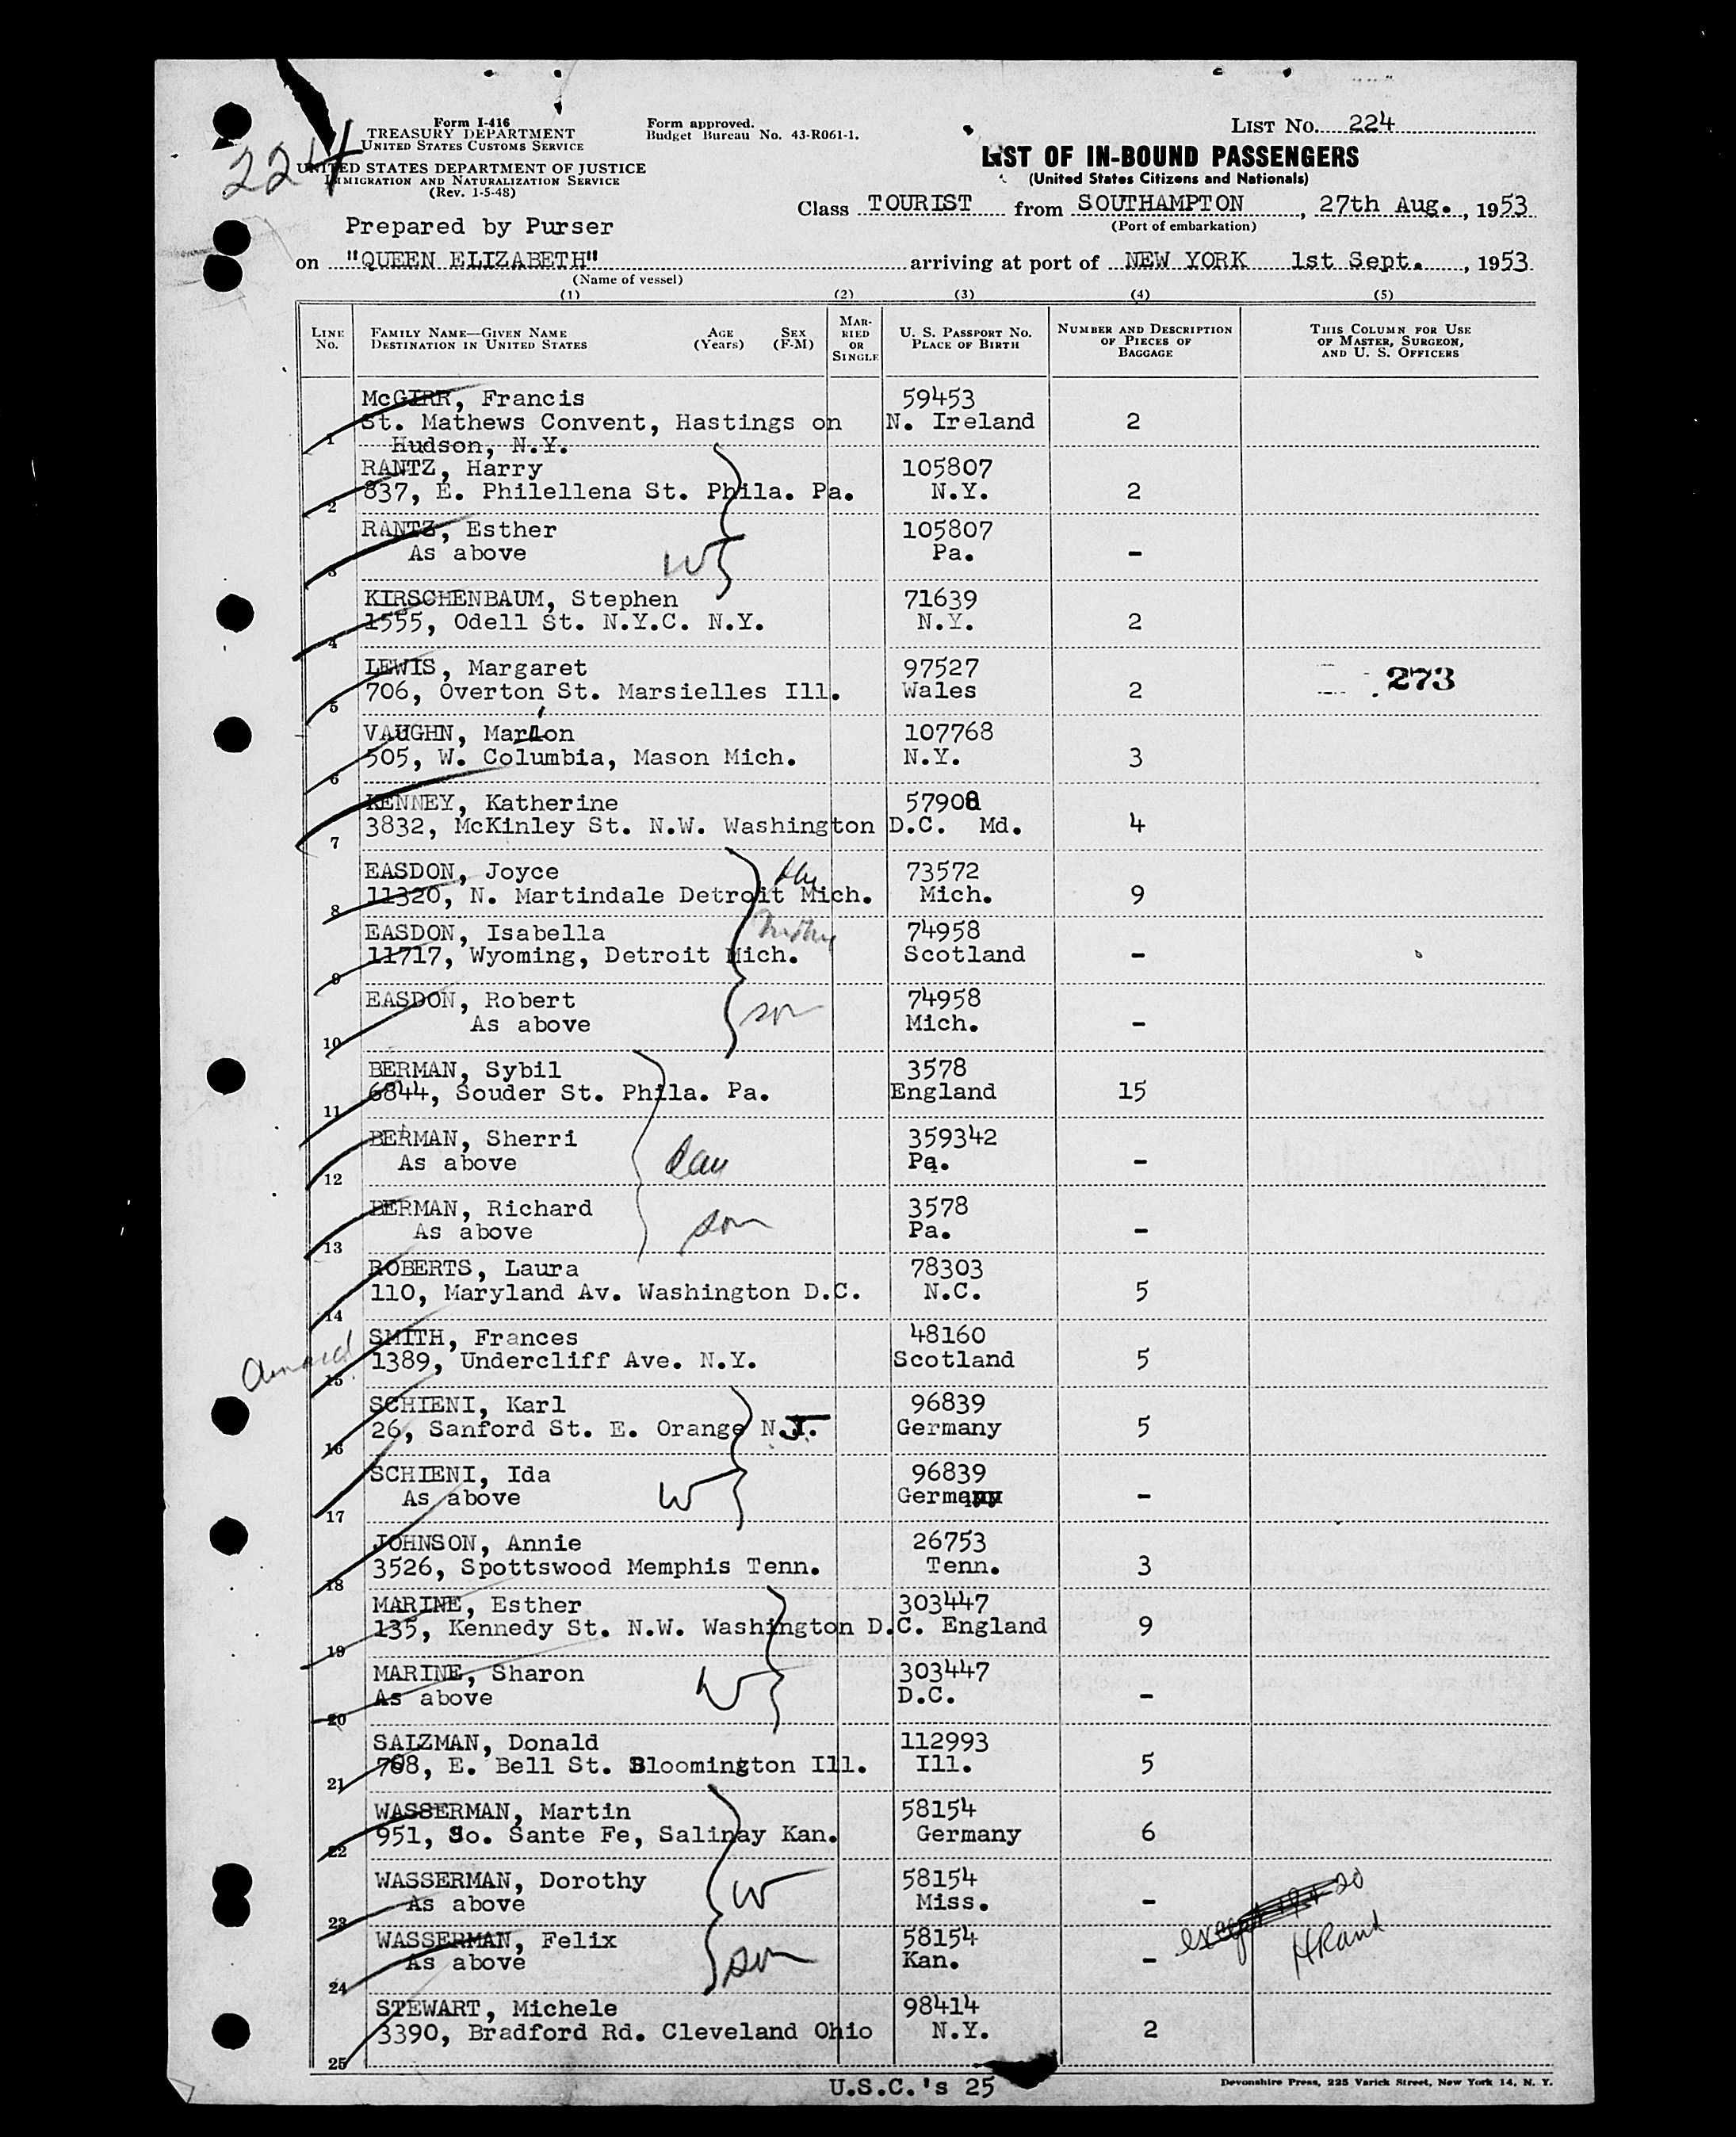 224
Form I-416
TREASURY DEPARTMENT
UNITED STATES CUSTOMS SERVICE
UNITED STATES DEPARTMENT OF JUSTICE
IMMIGRATION AND NATURALIZATION SERVICE
(Rev. 1-5-48)
Form approved.
Budget Bureau No. 43-R061-1.
LIST No. 224
LIST OF IN-BOUND PASSENGERS
(United States Citizens and Nationals)
Class TOURIST from SOUTHAMPTON, 27th Aug., 1953
(Port of embarkation)
Prepared by Purser
on "QUEEN ELIZABETH" arriving at port of NEW YORK 1st Sept., 1953
(Name of vessel)
(1) (2) (3) (4) (5)
LINE No. FAMILY NAME—GIVEN NAME DESTINATION IN UNITED STATES AGE (Years) SEX (F-M) MARRIED OR SINGLE U. S. PASSPORT NO. PLACE OF BIRTH NUMBER AND DESCRIPTION OF PIECES OF BAGGAGE THIS COLUMN FOR USE OF MASTER, SURGEON, AND U. S. OFFICERS
McGIRR, Francis 59453
1 St. Mathews Convent, Hastings on N. Ireland 2
Hudson, N.Y.
RANTZ, Harry 105807
2 837, E. Philellena St. Phila. Pa. N.Y. 2
RANTZ, Esther 105807
3 As above W Pa. -
KIRSCHENBAUM, Stephen 71639
4 1555, Odell St. N.Y.C. N.Y. N.Y. 2
LEWIS, Margaret 97527
5 706, Overton St. Marsielles Ill. Wales 2 273
VAUGHN, Marion 107768
6 505, W. Columbia, Mason Mich. N.Y. 3
KENNEY, Katherine 57908
7 3832, McKinley St. N.W. Washington D.C. Md. 4
EASDON, Joyce 73572
8 11320, N. Martindale Detroit Mich. Mich. 9
EASDON, Isabella mother 74958
9 11717, Wyoming, Detroit Mich. Scotland -
EASDON, Robert 74958
10 As above son Mich. -
BERMAN, Sybil 3578
11 6844, Souder St. Phila. Pa. England 15
BERMAN, Sherri 359342
12 As above dau Pa. -
BERMAN, Richard 3578
13 As above son Pa. -
ROBERTS, Laura 78303
14 110, Maryland Av. Washington D.C. N.C. 5
SMITH, Frances 48160
15 1389, Undercliff Ave. N.Y. Scotland 5
SCHIENI, Karl 96839
16 26, Sanford St. E. Orange N.J. Germany 5
SCHIENI, Ida 96839
17 As above W Germany -
JOHNSON, Annie 26753
18 3526, Spottswood Memphis Tenn. Tenn. 3
MARINE, Esther 303447
19 135, Kennedy St. N.W. Washington D.C. England 9
MARINE, Sharon 303447
20 As above W D.C. -
SALZMAN, Donald 112993
21 708, E. Bell St. Bloomington Ill. Ill. 5
WASSERMAN, Martin 58154
22 951, So. Sante Fe, Salinay Kan. Germany 6
WASSERMAN, Dorothy 58154
23 As above W Miss. -
except 19+20
WASSERMAN, Felix 58154
24 As above son Kan. -
HRand
STEWART, Michele 98414
25 3390, Bradford Rd. Cleveland Ohio N.Y. 2
U.S.C.'s 25
Devonshire Press, 225 Varick Street, New York 14, N. Y.